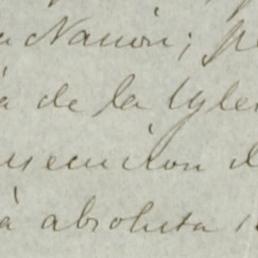 Nacion; p
a de la Ygle
secucion d
à absoluta i